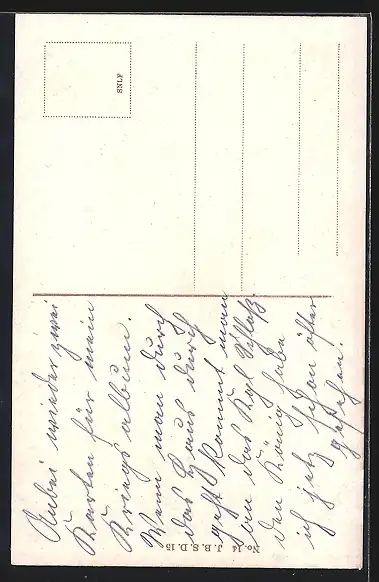 Anbei wieder zwei
Karten für mein
Kriegsalbum.
Wenn man durch
das Haus durch
geht kommt man
an das Kgl Schloß.
den König habe
ich jetzt schon öfter
gesehen.
SNLF
No. 14 J. B. S. D. 15